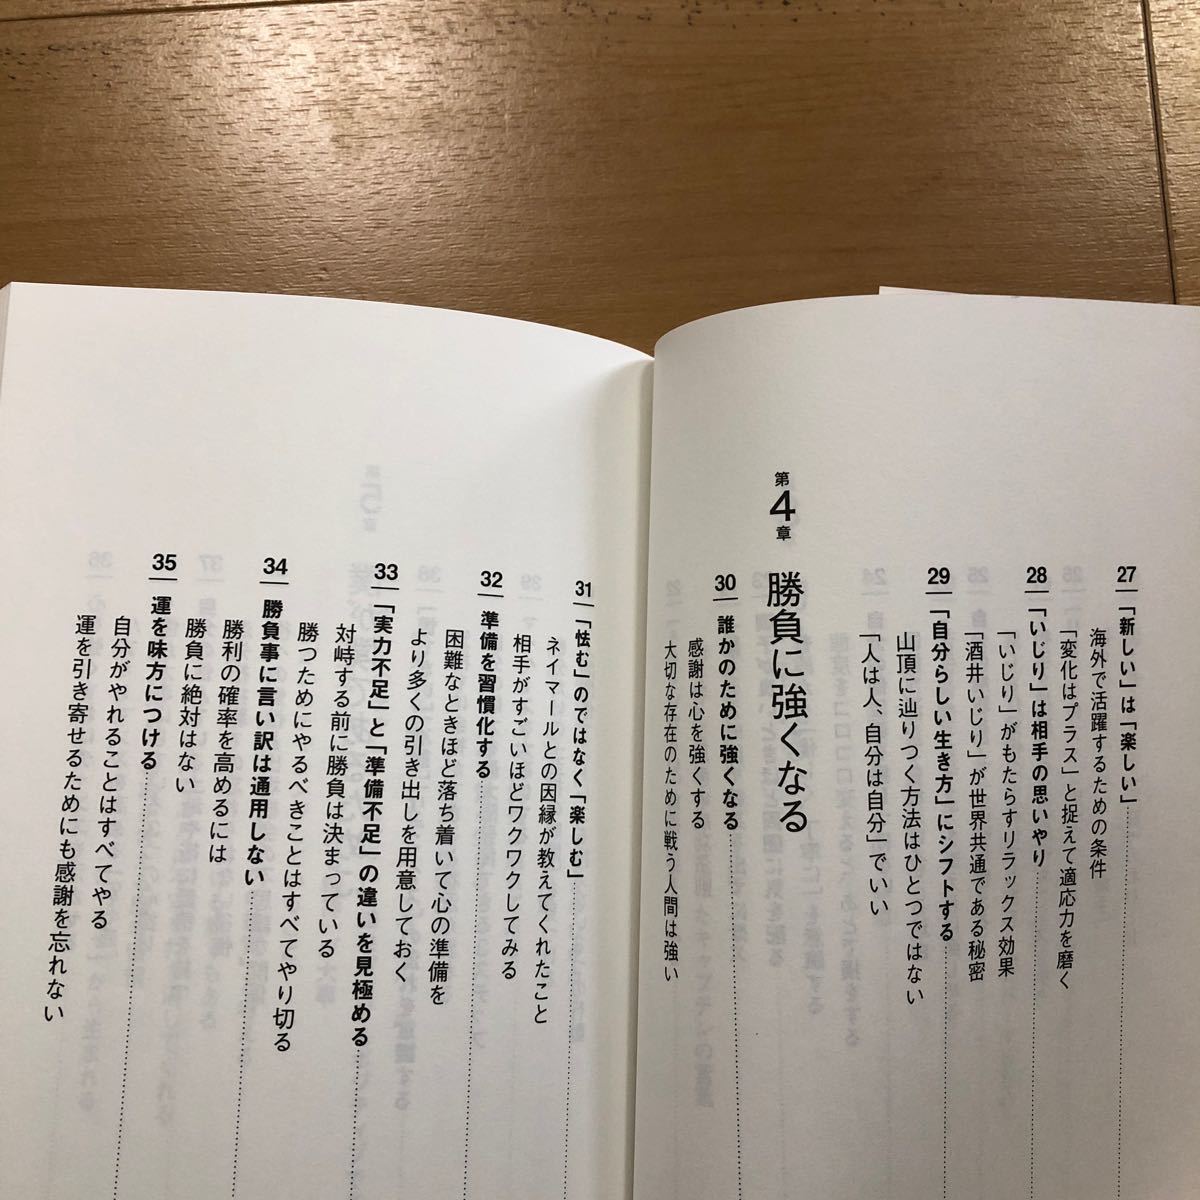 27 「新しい」は「楽しい」
海外で活躍するための条件
「変化はプラス」と捉えて適応力を磨く
28 「いじり」は相手の思いやり
「いじり」がもたらすリラックス効果
「酒井いじり」が世界共通である秘密
29 「自分らしい生き方」にシフトする
山頂に辿りつく方法はひとつではない
「人は人、自分は自分」でいい
第4章 勝負に強くなる
30 誰かのために強くなる
感謝は心を強くする
大切な存在のために戦う人間は強い
31 「怯む」のではなく「楽しむ」
ネイマールとの因縁が教えてくれたこと
相手がすごいほどワクワクしてみる
32 準備を習慣化する
困難なときほど落ち着いて心の準備を
より多くの引き出しを用意しておく
33 「実力不足」と「準備不足」の違いを見極める
対峙する前に勝負は決まっている
勝つためにやるべきことはすべてやり切る
34 勝負事に言い訳は通用しない
勝利の確率を高めるには
勝負に絶対はない
35 運を味方につける
自分がやれることはすべてやる
運を引き寄せるためにも感謝を忘れない